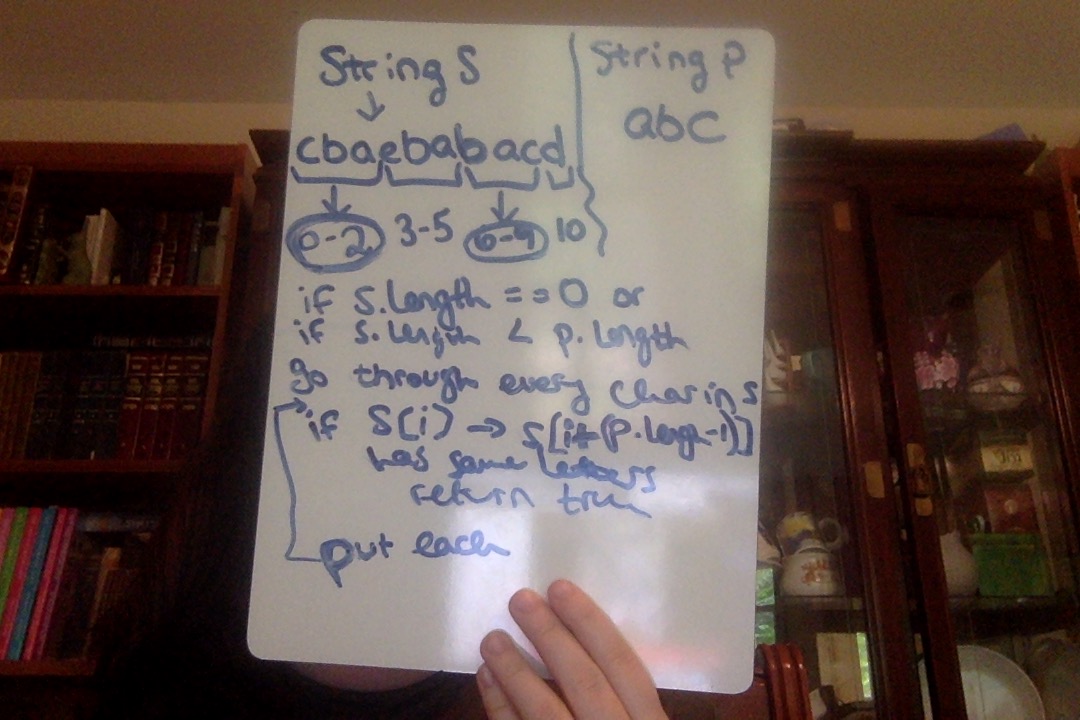 String S
↓
cbaebabacd
0-2 3-5 6-9 10
String P
abc
if s.length == 0 or
if s.length < p.length
go through every char in s
if S(i) → s[i+(p.lengh-1)]
has same letters
return true
put each